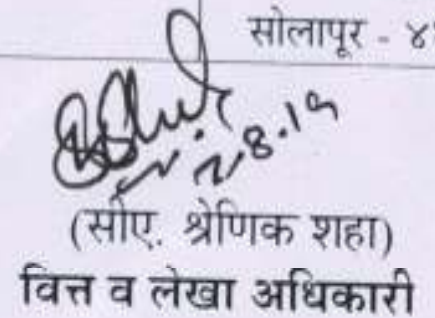 सोलापूर - ४
(सीए. श्रेणिक शहा)
वित्त व लेखा अधिकारी